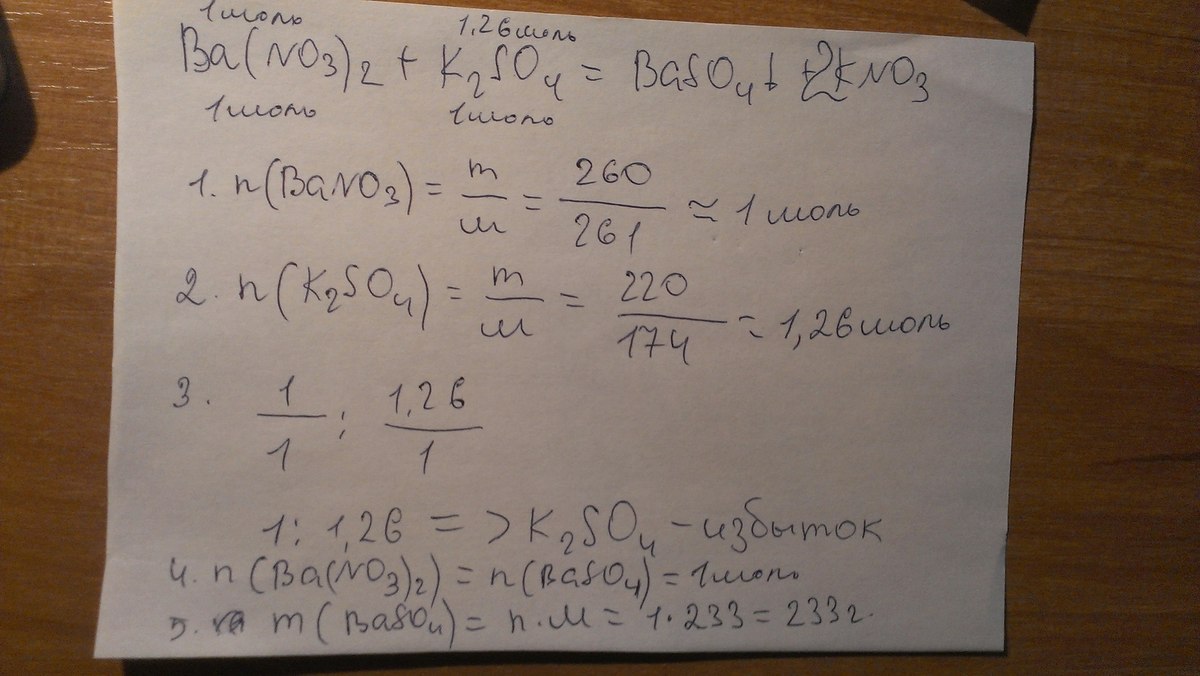 1моль 1,26моль
Ba(NO3)2 + K2SO4 = BaSO4↓ + 2KNO3
1моль 1моль
1. n(BaNO3) = m/м = 260/261 ≈ 1 моль
2. n(K2SO4) = m/м = 220/174 = 1,26моль
3. 1/1 ; 1,26/1
1 : 1,26 => K2SO4 - избыток
4. n(Ba(NO3)2) = n(BaSO4) = 1моль
5. m(BaSO4) = n·M = 1·233 = 233г.